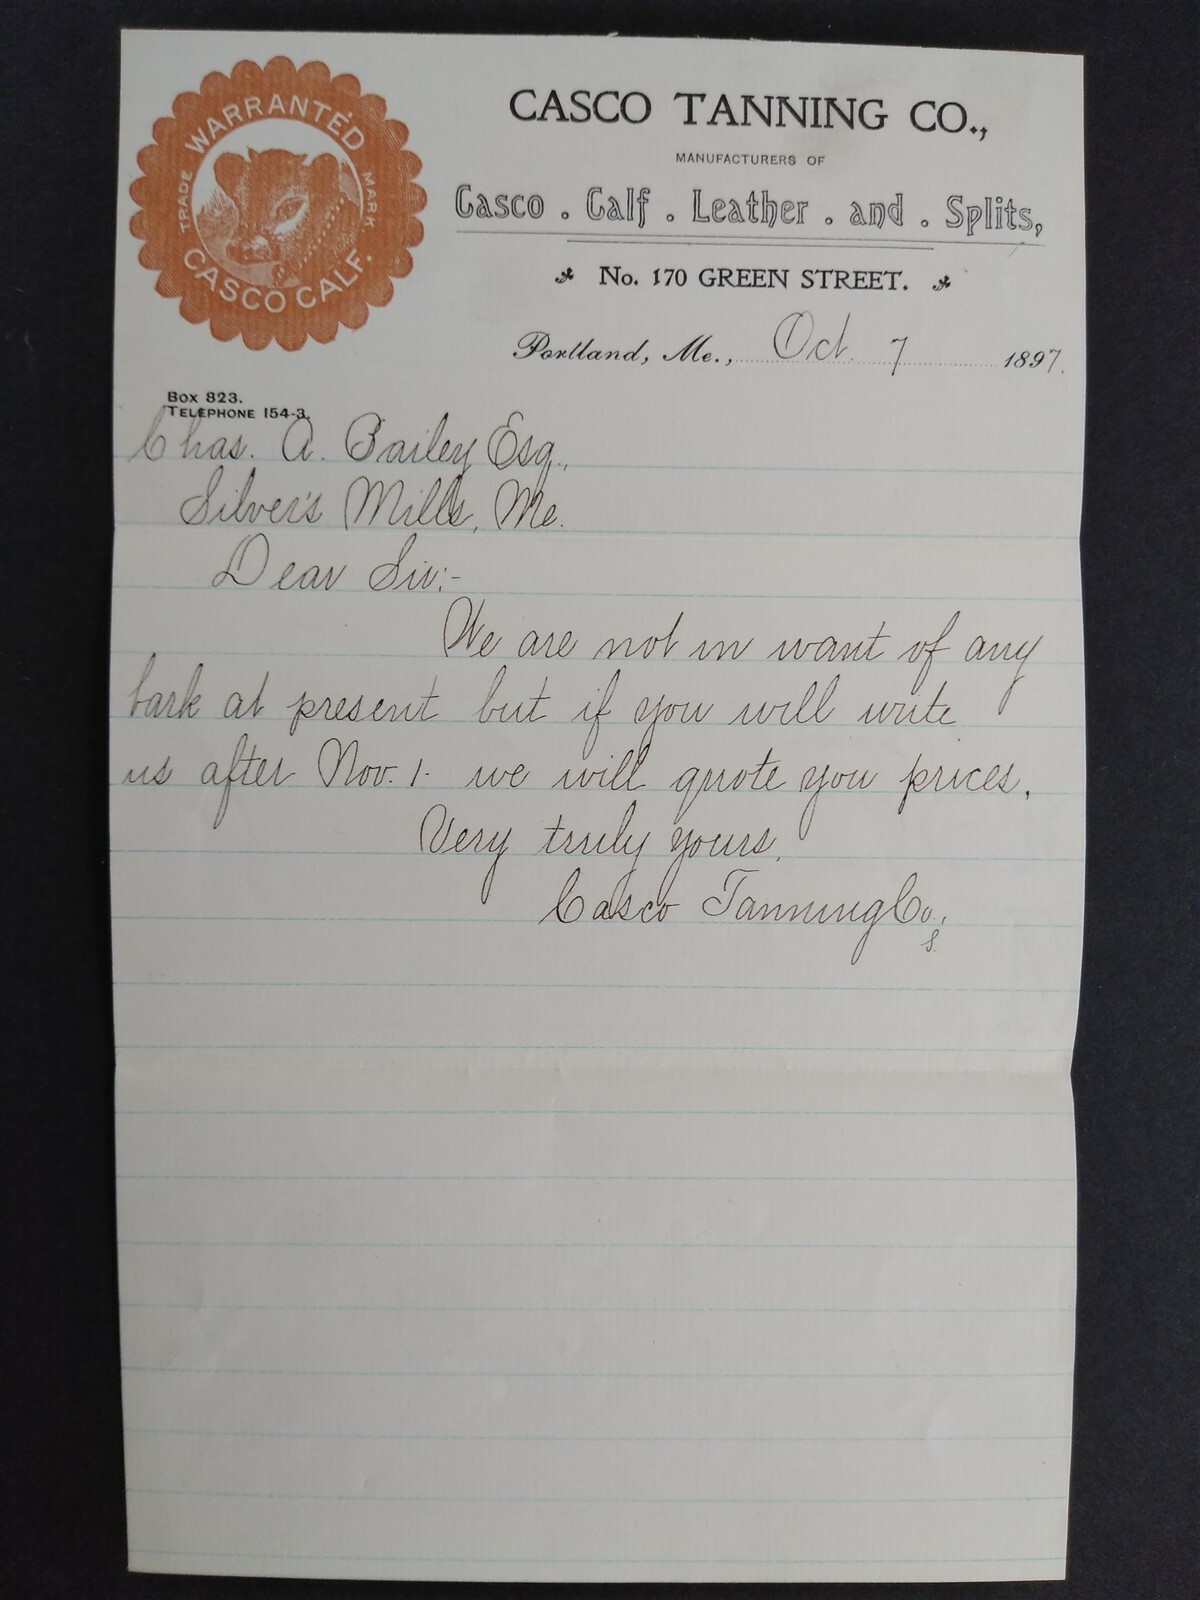 WARRANTED
TRADE MARK
CASCO CALF.
CASCO TANNING CO.,
MANUFACTURERS OF
Casco . Calf . Leather . and . Splits,
No. 170 GREEN STREET.
Portland, Me., Oct. 7 1897.
Box 823.
TELEPHONE 154-3.
Chas. A. Bailey Esq.,
Silver's Mills, Me.
Dear Sir:-
We are not in want of any
bark at present but if you will write
us after Nov. 1. we will quote you prices.
Very truly yours,
Casco Tanning Co.,
S.